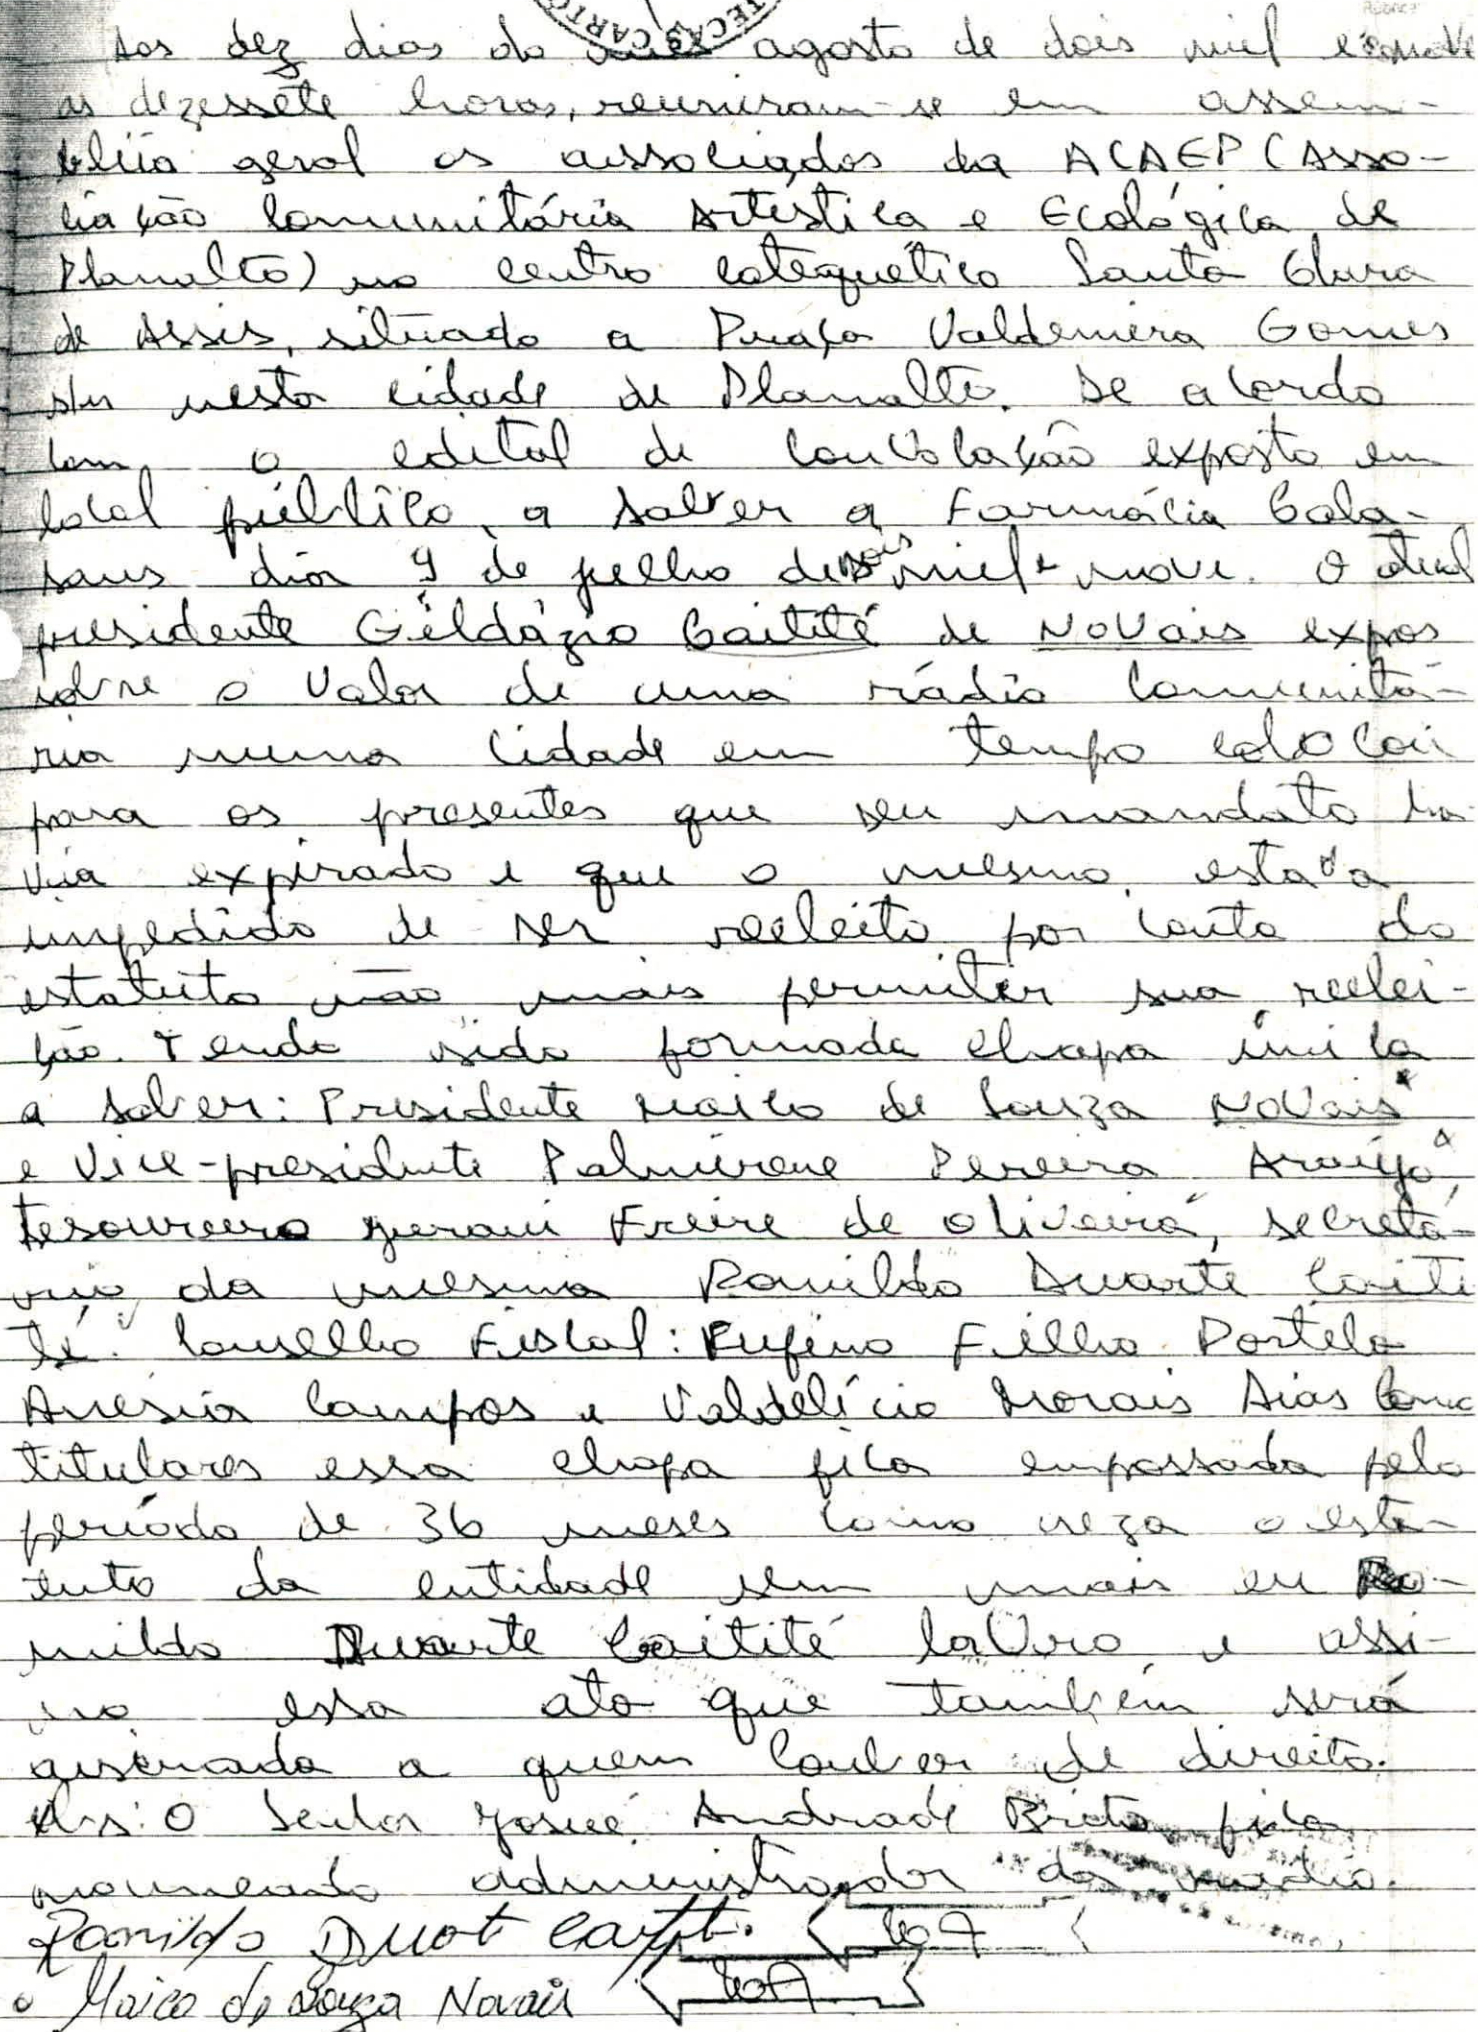 TECAS CARTO
Aos dez dias do mês agosto de dois mil e nove
as dezessete horas, reuniram-se em assem-
bleia geral os associados da ACAEP (Asso-
ciação Comunitária Artística e Ecológica de
Planalto) no centro catequético Santa Clara
de Assis, situado a Praça Valdemira Gomes
s/n nesta cidade de Planalto. De acordo
com o edital de convocação exposto em
local público, a saber a Farmácia Cala-
sans dia 9 de julho de dois mil e nove. O atual
presidente Gildázio Caitité de Novais expos
sobre o valor de uma rádio comunitá-
ria numa cidade em tempo colocou
para os presentes que seu mandato ha-
via expirado e que o mesmo estava
impedido de ser reeleito por conta do
estatuto não mais permitir sua reelei-
ção. Tendo sido formada chapa única
a saber: Presidente Maico de Souza Novais
e Vice-presidente Palmirene Pereira Araújo,
tesoureiro Juraui Freire de Oliveira, secretá-
rio da mesma Ronildo Duarte Caiti
té. Conselho Fiscal: Rufino Filho Portela
Anesia Campos e Valdelício Morais Dias como
titulares essa chapa fica empossada pelo
período de 36 meses como reza o esta-
tuto da entidade sem mais eu Ro-
nildo Duarte Caitité lavro e assi-
no essa ata que também será
assinada a quem couber de direito.
O Senhor Josué Andrade Brito fica
nomeado administrador da rádio.
Ronildo Duart Caitit.
Maico de Souza Novais